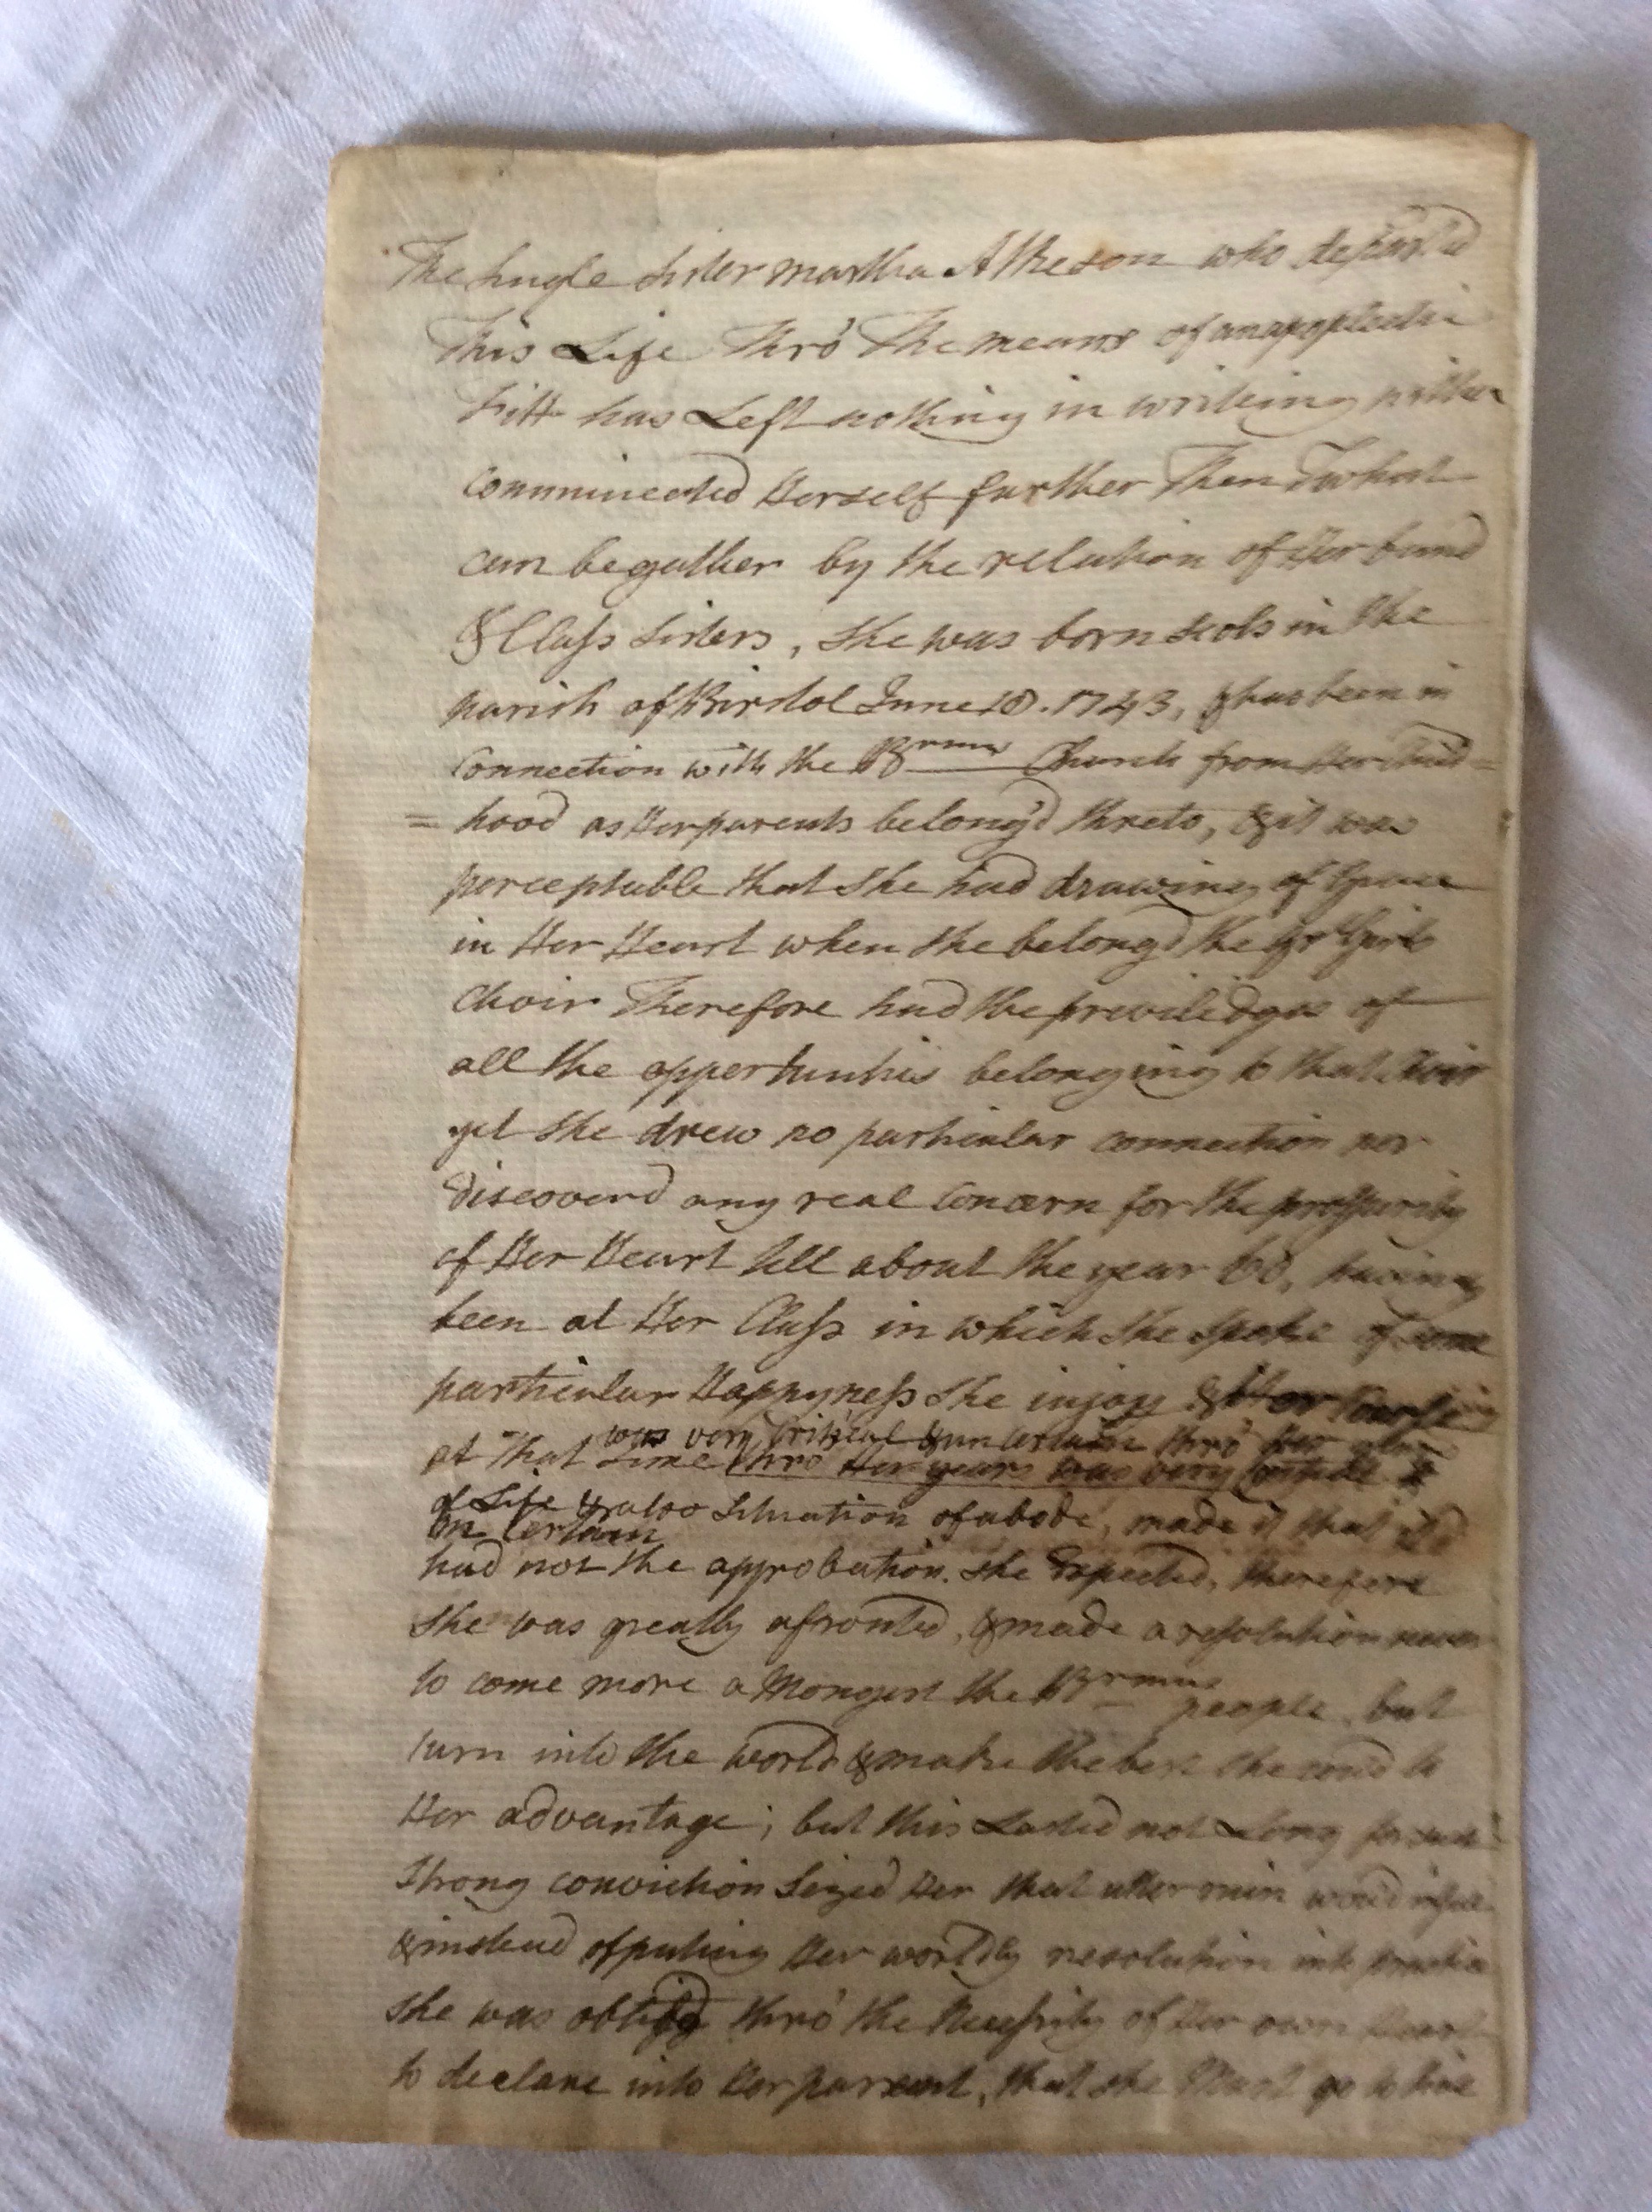 The single Sister Martha Atkeson who departed
This Life Thro' The means of an apoplectic
Fitt has Left nothing in writeing nither
communicated Herself further Then what
can be gather by the relation of Her band
& Class Sisters, She was born Scots in the
parish of Birstol June 10. 1743, & has been in
Connection with the Brens Church from Her Child=
=hood as Her parents belong'd threto, & it was
perceptable that She had drawing of Grace
in Her Heart when She belong'd the Gr Girls
Choir Therefore had the previledges of
all the oppertunitis belonging to that Choir
yet She drew no particular connection nor
discoverd any real Concern for the prosperity
of Her Heart till about the year 60, having
been at Her Class in which She Spoke of some
particular Happyness She injoy & Her Course
was very Critical & uncertain thro' her
at That time thro' Her years was very
of Life & also Situation of abode, made it that
un certain
had not the approbation She Expected, therefore
She was greatly afronted, & made a resolution never
to come more a Mongest the Brens people, but
turn into the world & make the best She coud to
Her advantage; but this Lasted not Long for such
Strong conviction Seized Her that utter ruin woud
& instead of puting Her worldly resolution into practice
She was obligd thro' the Necessity of Her own Heart
to declare into Her parent, that she Must go to live